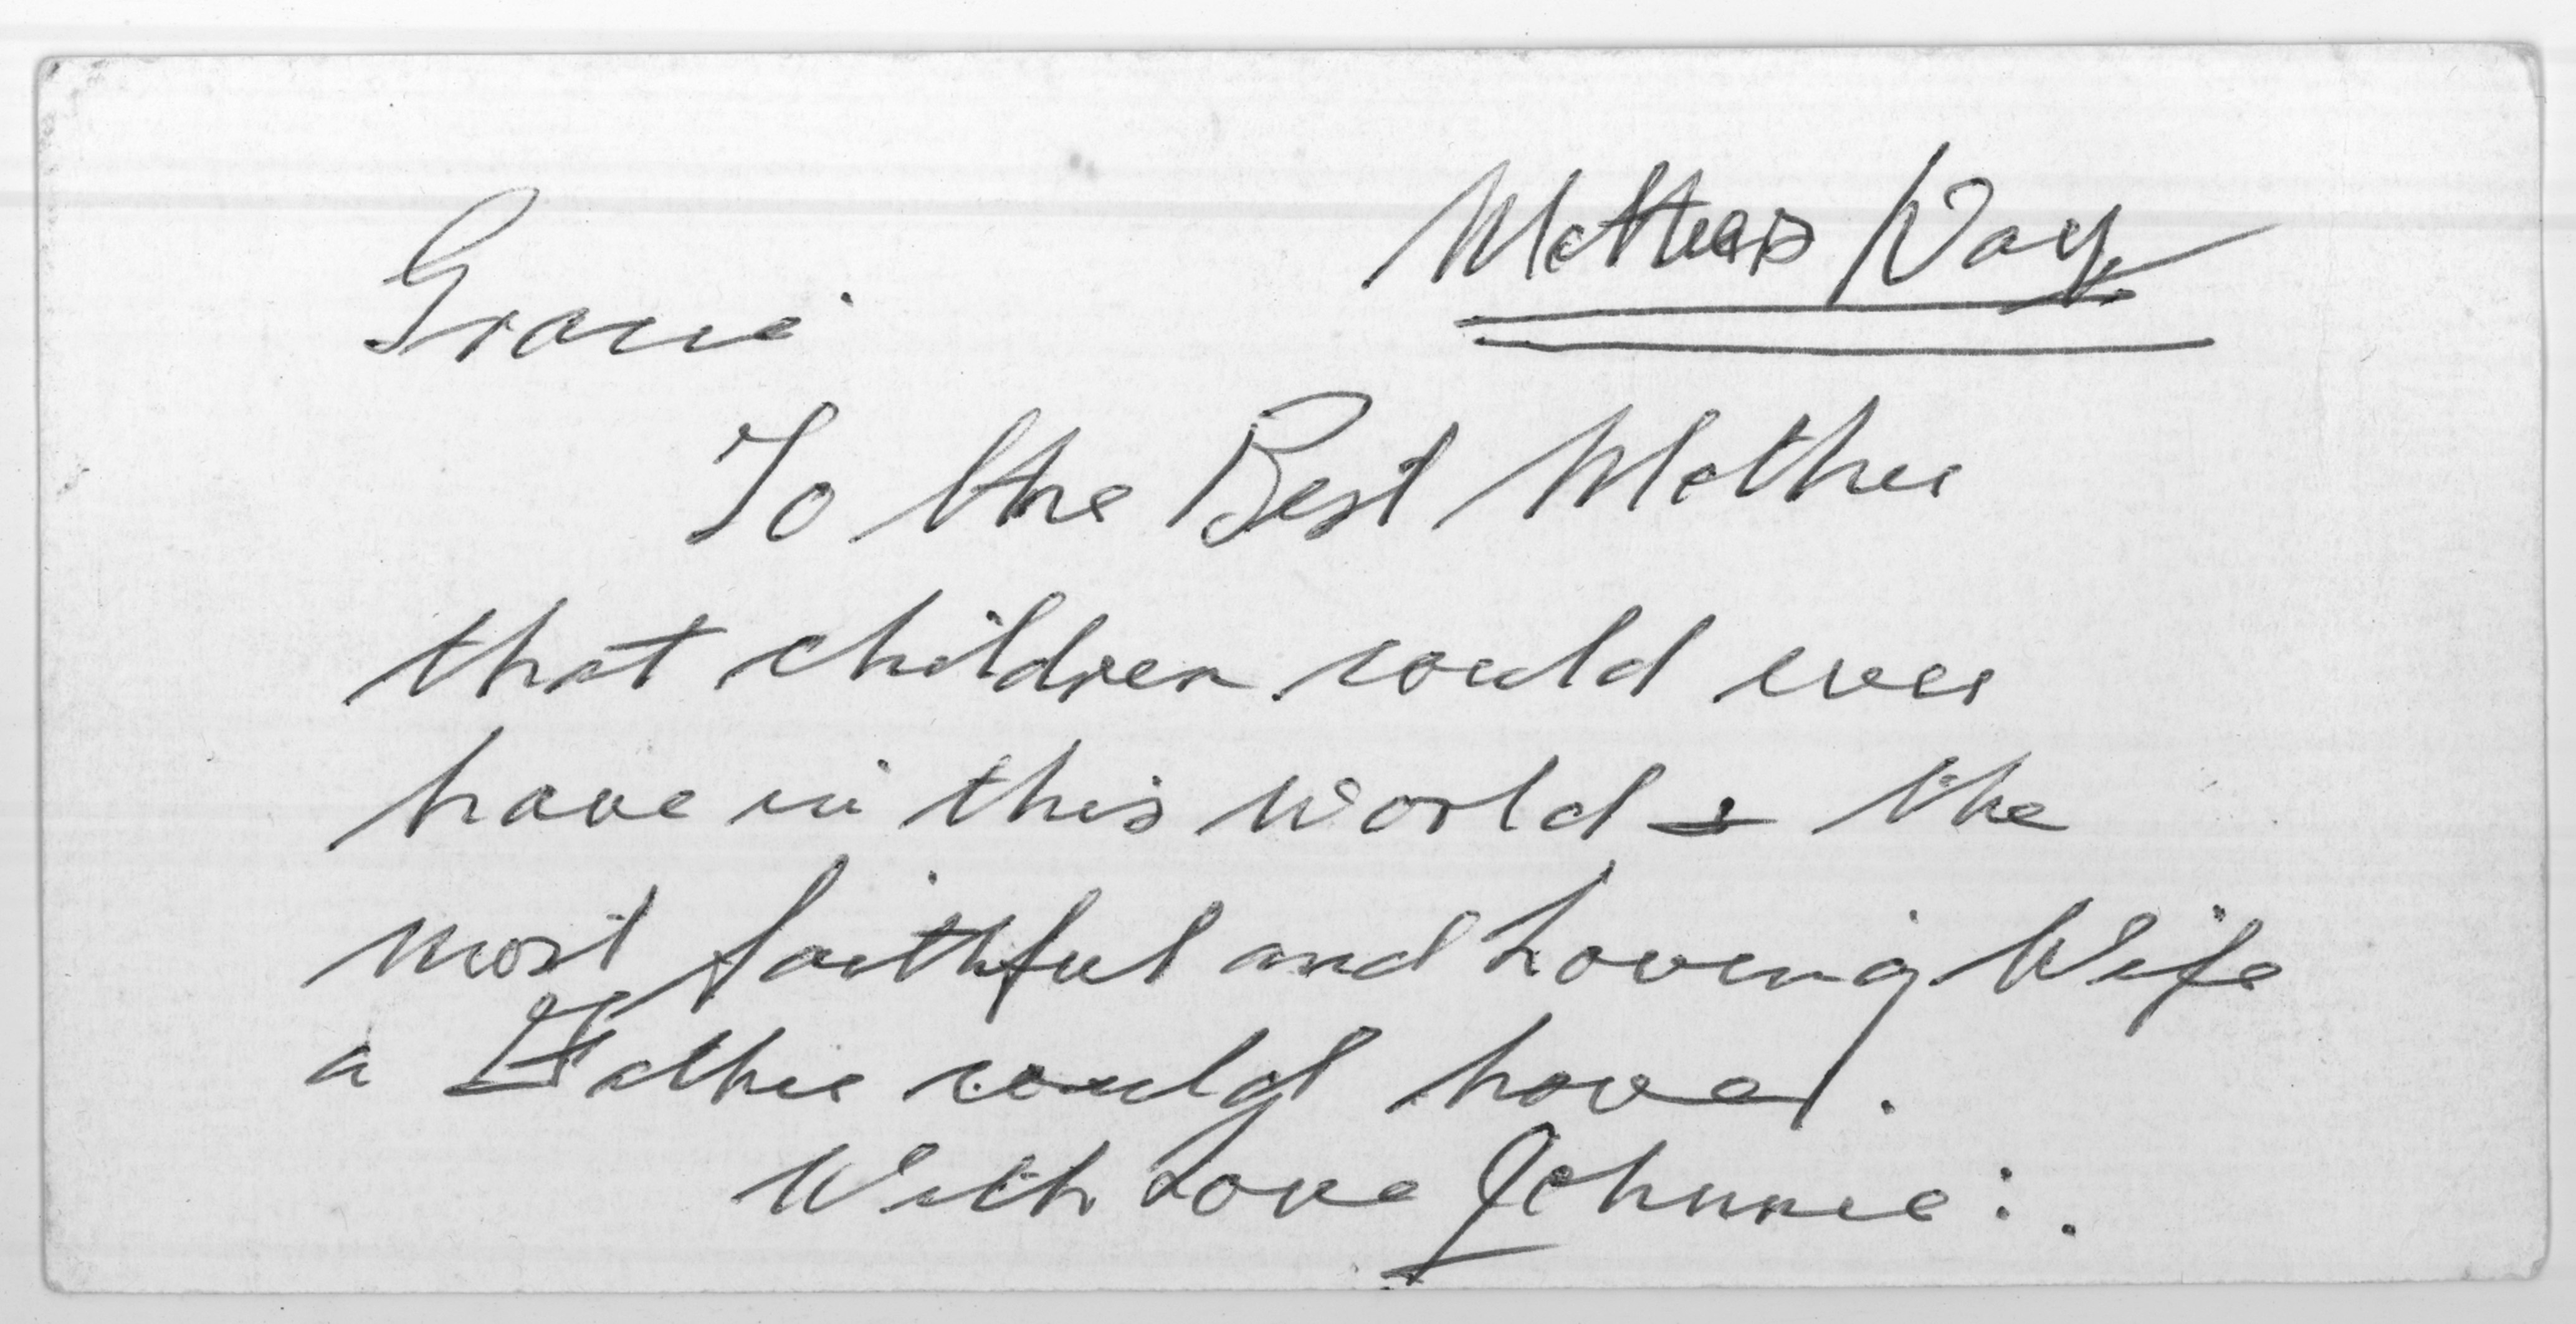 Mothers Day
Gracie
To the Best Mother
that children could ever
have in this world & the
most faithful and Loving Wife
a Father could have.
With Love Johnnie:.